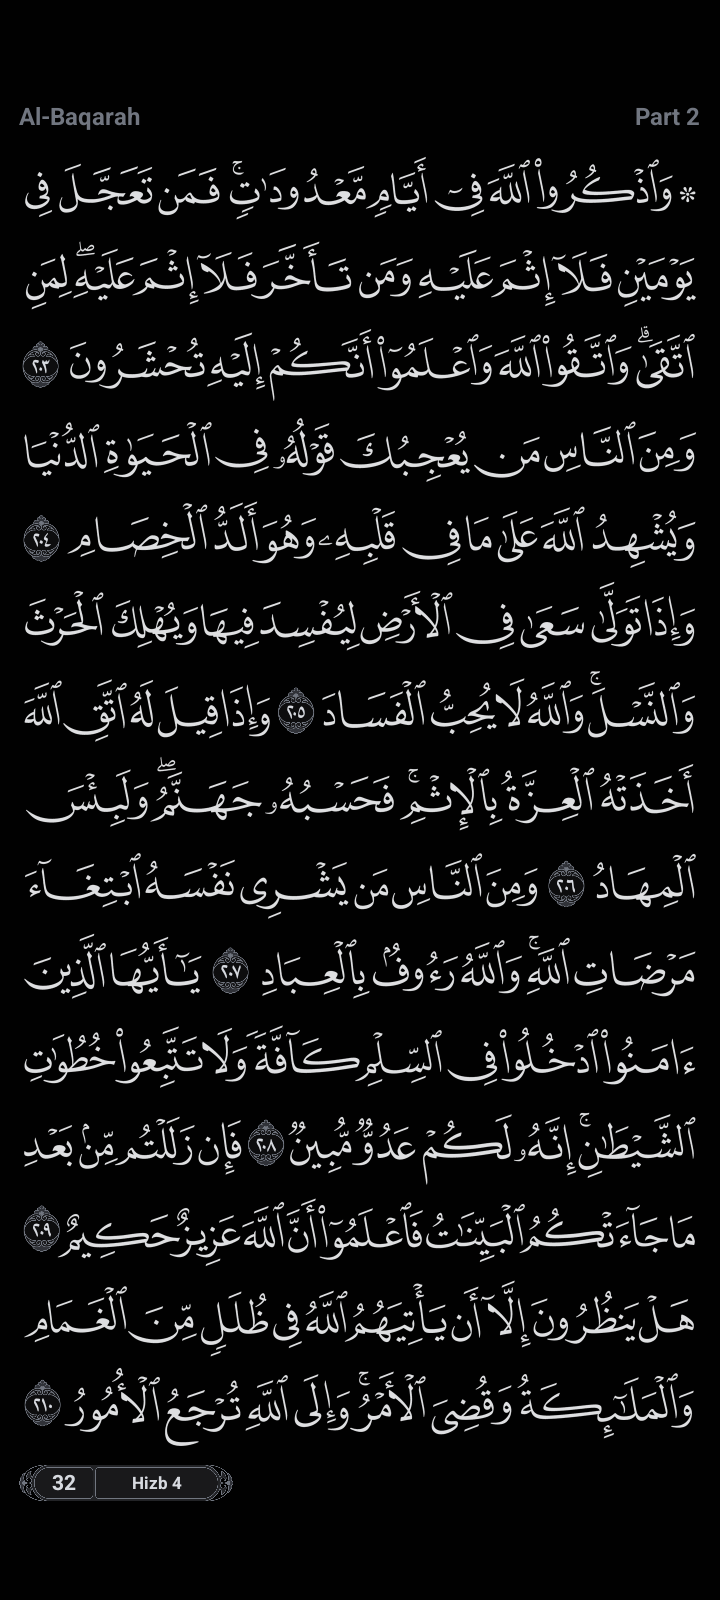 Al-Baqarah Part 2
۞ وَٱذْكُرُوا۟ ٱللَّهَ فِىٓ أَيَّامٍ مَّعْدُودَٰتٍ ۚ فَمَن تَعَجَّلَ فِى
يَوْمَيْنِ فَلَآ إِثْمَ عَلَيْهِ وَمَن تَأَخَّرَ فَلَآ إِثْمَ عَلَيْهِ ۖ لِمَنِ
ٱتَّقَىٰ ۗ وَٱتَّقُوا۟ ٱللَّهَ وَٱعْلَمُوٓا۟ أَنَّكُمْ إِلَيْهِ تُحْشَرُونَ ٢٠٣
وَمِنَ ٱلنَّاسِ مَن يُعْجِبُكَ قَوْلُهُۥ فِى ٱلْحَيَوٰةِ ٱلدُّنْيَا
وَيُشْهِدُ ٱللَّهَ عَلَىٰ مَا فِى قَلْبِهِۦ وَهُوَ أَلَدُّ ٱلْخِصَامِ ٢٠٤
وَإِذَا تَوَلَّىٰ سَعَىٰ فِى ٱلْأَرْضِ لِيُفْسِدَ فِيهَا وَيُهْلِكَ ٱلْحَرْثَ
وَٱلنَّسْلَ ۗ وَٱللَّهُ لَا يُحِبُّ ٱلْفَسَادَ ٢٠٥ وَإِذَا قِيلَ لَهُ ٱتَّقِ ٱللَّهَ
أَخَذَتْهُ ٱلْعِزَّةُ بِٱلْإِثْمِ ۚ فَحَسْبُهُۥ جَهَنَّمُ ۖ وَلَبِئْسَ
ٱلْمِهَادُ ٢٠٦ وَمِنَ ٱلنَّاسِ مَن يَشْرِى نَفْسَهُ ٱبْتِغَآءَ
مَرْضَاتِ ٱللَّهِ ۚ وَٱللَّهُ رَءُوفٌۢ بِٱلْعِبَادِ ٢٠٧ يَٰٓأَيُّهَا ٱلَّذِينَ
ءَامَنُوا۟ ٱدْخُلُوا۟ فِى ٱلسِّلْمِ كَآفَّةً وَلَا تَتَّبِعُوا۟ خُطُوَٰتِ
ٱلشَّيْطَٰنِ ۚ إِنَّهُۥ لَكُمْ عَدُوٌّ مُّبِينٌ ٢٠٨ فَإِن زَلَلْتُم مِّنۢ بَعْدِ
مَا جَآءَتْكُمُ ٱلْبَيِّنَٰتُ فَٱعْلَمُوٓا۟ أَنَّ ٱللَّهَ عَزِيزٌ حَكِيمٌ ٢٠٩
هَلْ يَنظُرُونَ إِلَّآ أَن يَأْتِيَهُمُ ٱللَّهُ فِى ظُلَلٍ مِّنَ ٱلْغَمَامِ
وَٱلْمَلَٰٓئِكَةُ وَقُضِىَ ٱلْأَمْرُ ۚ وَإِلَى ٱللَّهِ تُرْجَعُ ٱلْأُمُورُ ٢١٠
32 Hizb 4